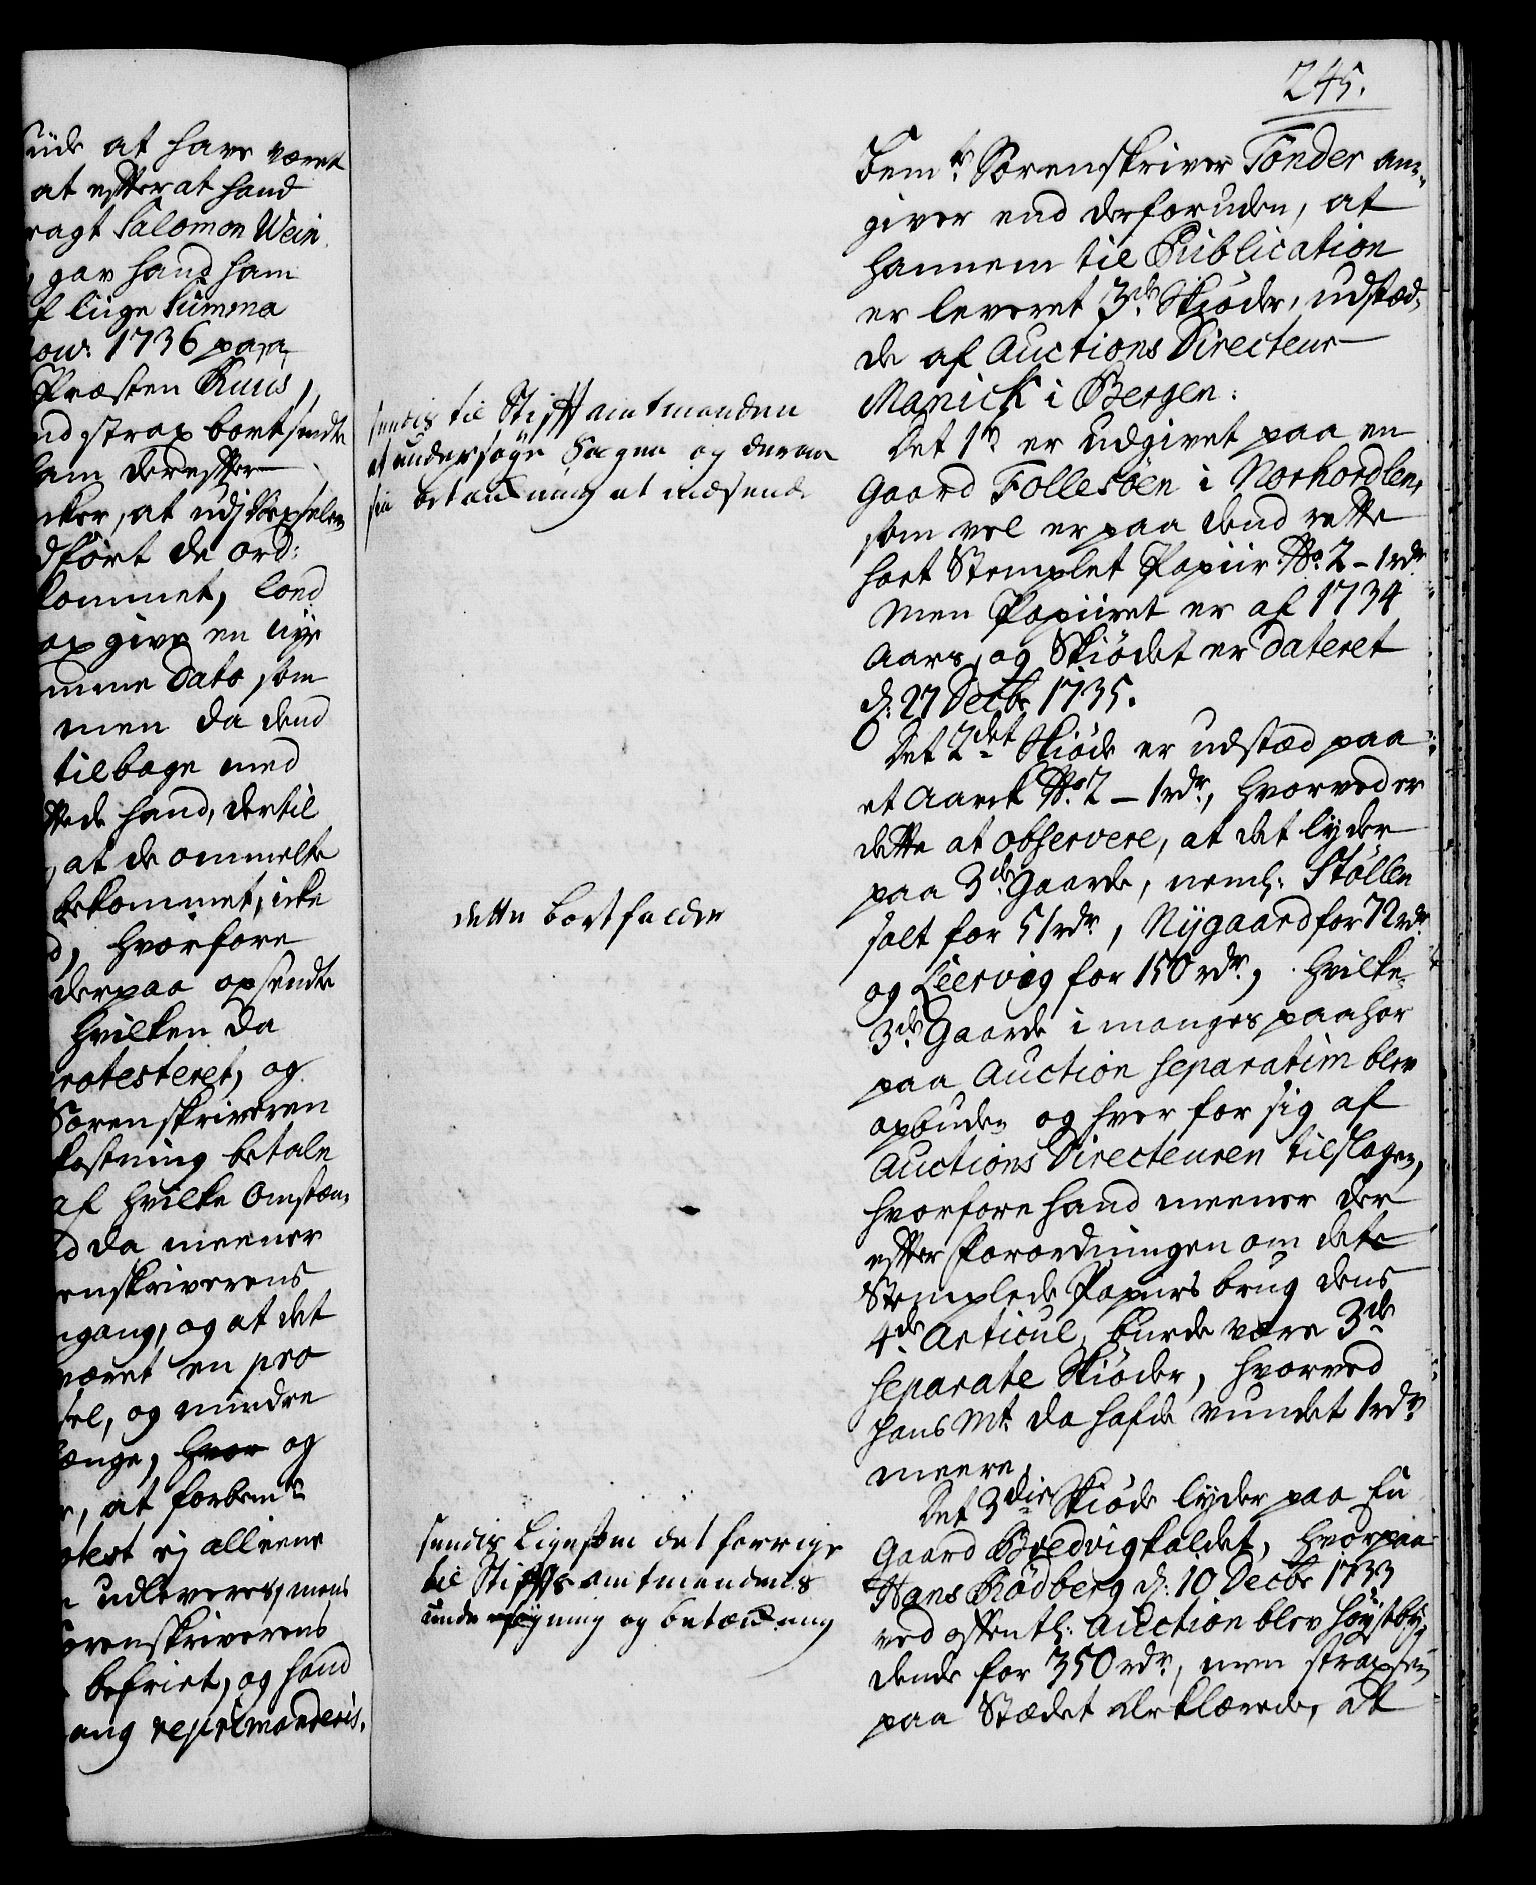 245.
üde at have været
at efter at hand
ragt Salomon Wein
gav hand ham
af liige Summa
1736 paa
Præsten Ruus,
nd strax bortsendte
ham derefter
cker, at udj Vexselen
dført de ord:
kommet, lod
op give en nye
mme Dato som
men da dend
tilbage med
ttede hand, dertil
, at de ommelte
bekommet, icke
d, hvorfore
derpaa opsendte
hvilken da
rotesteret, og
Sorenskriveren
kostning betale
af hvilke Omstæn,
d da meener
enskriverens
ngang, og at det
været en pro
sel, og mindre
længe, hvor og
r, at forbemte
otest ej alleene
udleveres, mens
orenskriverens
befriet, og hand
ang reprimanderis.
Bemte Sorenskriver Tonder an-
giver end derforuden, at
hannem til Publication
er leveret 3de Skiøder, udstæd-
de af Auctions Directeur
Manick i Bergen:
Det 1te er udgivet paa en
Gaard Follesöen i Norhordlen,
som vel er paa dend rette
sort Stemplet Papiir No. 2 - 1 rdr
Men Papiiret er af 1734
Aars, og Skiödet er dateret
d: 27 Decbr 1735.
Det 2det Skiöde er udstæd paa
et Aarck No. 2 - 1 rdr, hvorved er
dette at observere, at det lyder
paa 3de Gaarde, neml: Stöllen
solt for 51 rdr, Nygaard for 72 rdr
og Leervig for 150 rdr, hvilke
3de Gaarde i manges paahör
paa Auction separatim blev
opbuden og hver for sig af
Auctions Directeuren tilslagen,
hvorfore hand meener der
efter Forordningen om dete
Stemplede Papiirs brug dens
4de Articul, burde være 3de
separate Skiöder, hvorved
hans Mt. da hafde vundet 1 rdr
meere.
Det 3die Skiöde lyder paa En
Gaard Bredvig kaldet, hvorpaa
Hans Rödberg d: 10 Decbr 1733
ved offentl: Auction blev höystby-
dende for 350 rdr, men strax
paa Stædet Erklærede, at
sendis til Stiftamtmanden
at undersöge Sagen og derom
sin betænkning at indsende
dette bortfalder
sendis Ligesom det forrige
til Stiftsamtmandens
undersögning og betænkning